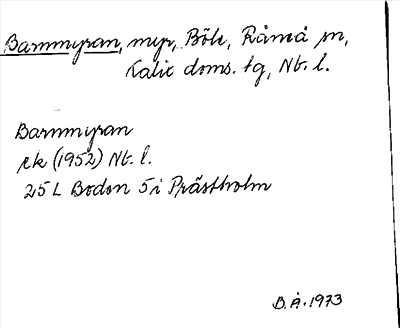 Barmmyran, myr, Böle, Råneå sn,
Kalix doms. tg, Nb. l.
Barmmyran
ek (1952) Nb. l.
25 L Boden 5 i Prästholm
B.Å. 1973